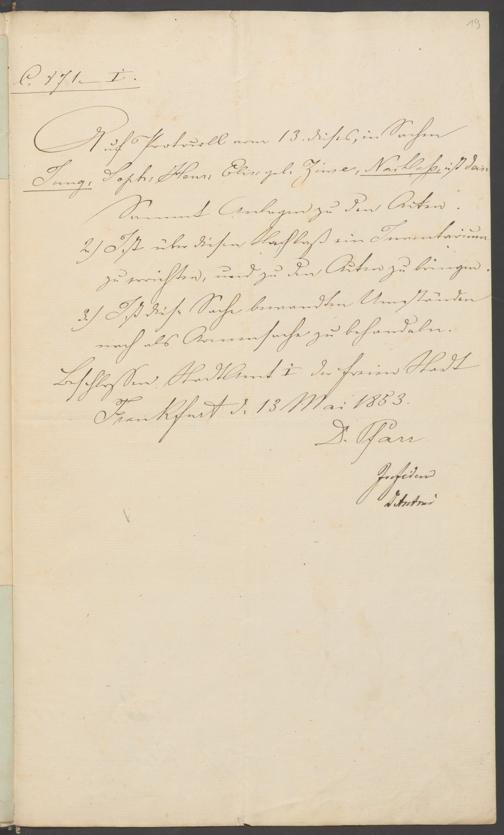 19
C. 171. I.
Auf Protocoll vom 13. dieses, in Sachen
Jung, Soph. Elis. geb. Nachlaß, ist dass
Sammt Anlagen zu den Acten.
2) Ist über diesen Nachlaß ein Inventarium
zu errichten, und zu den Acten zu bringen.
3) Ist diese Sache bewandten Umständen
nach als Armensache zu behandeln.
Beschlossen, Stadtamt I der freien Stadt
Frankfurt d. 13 Mai 1853.
D. Pfarr